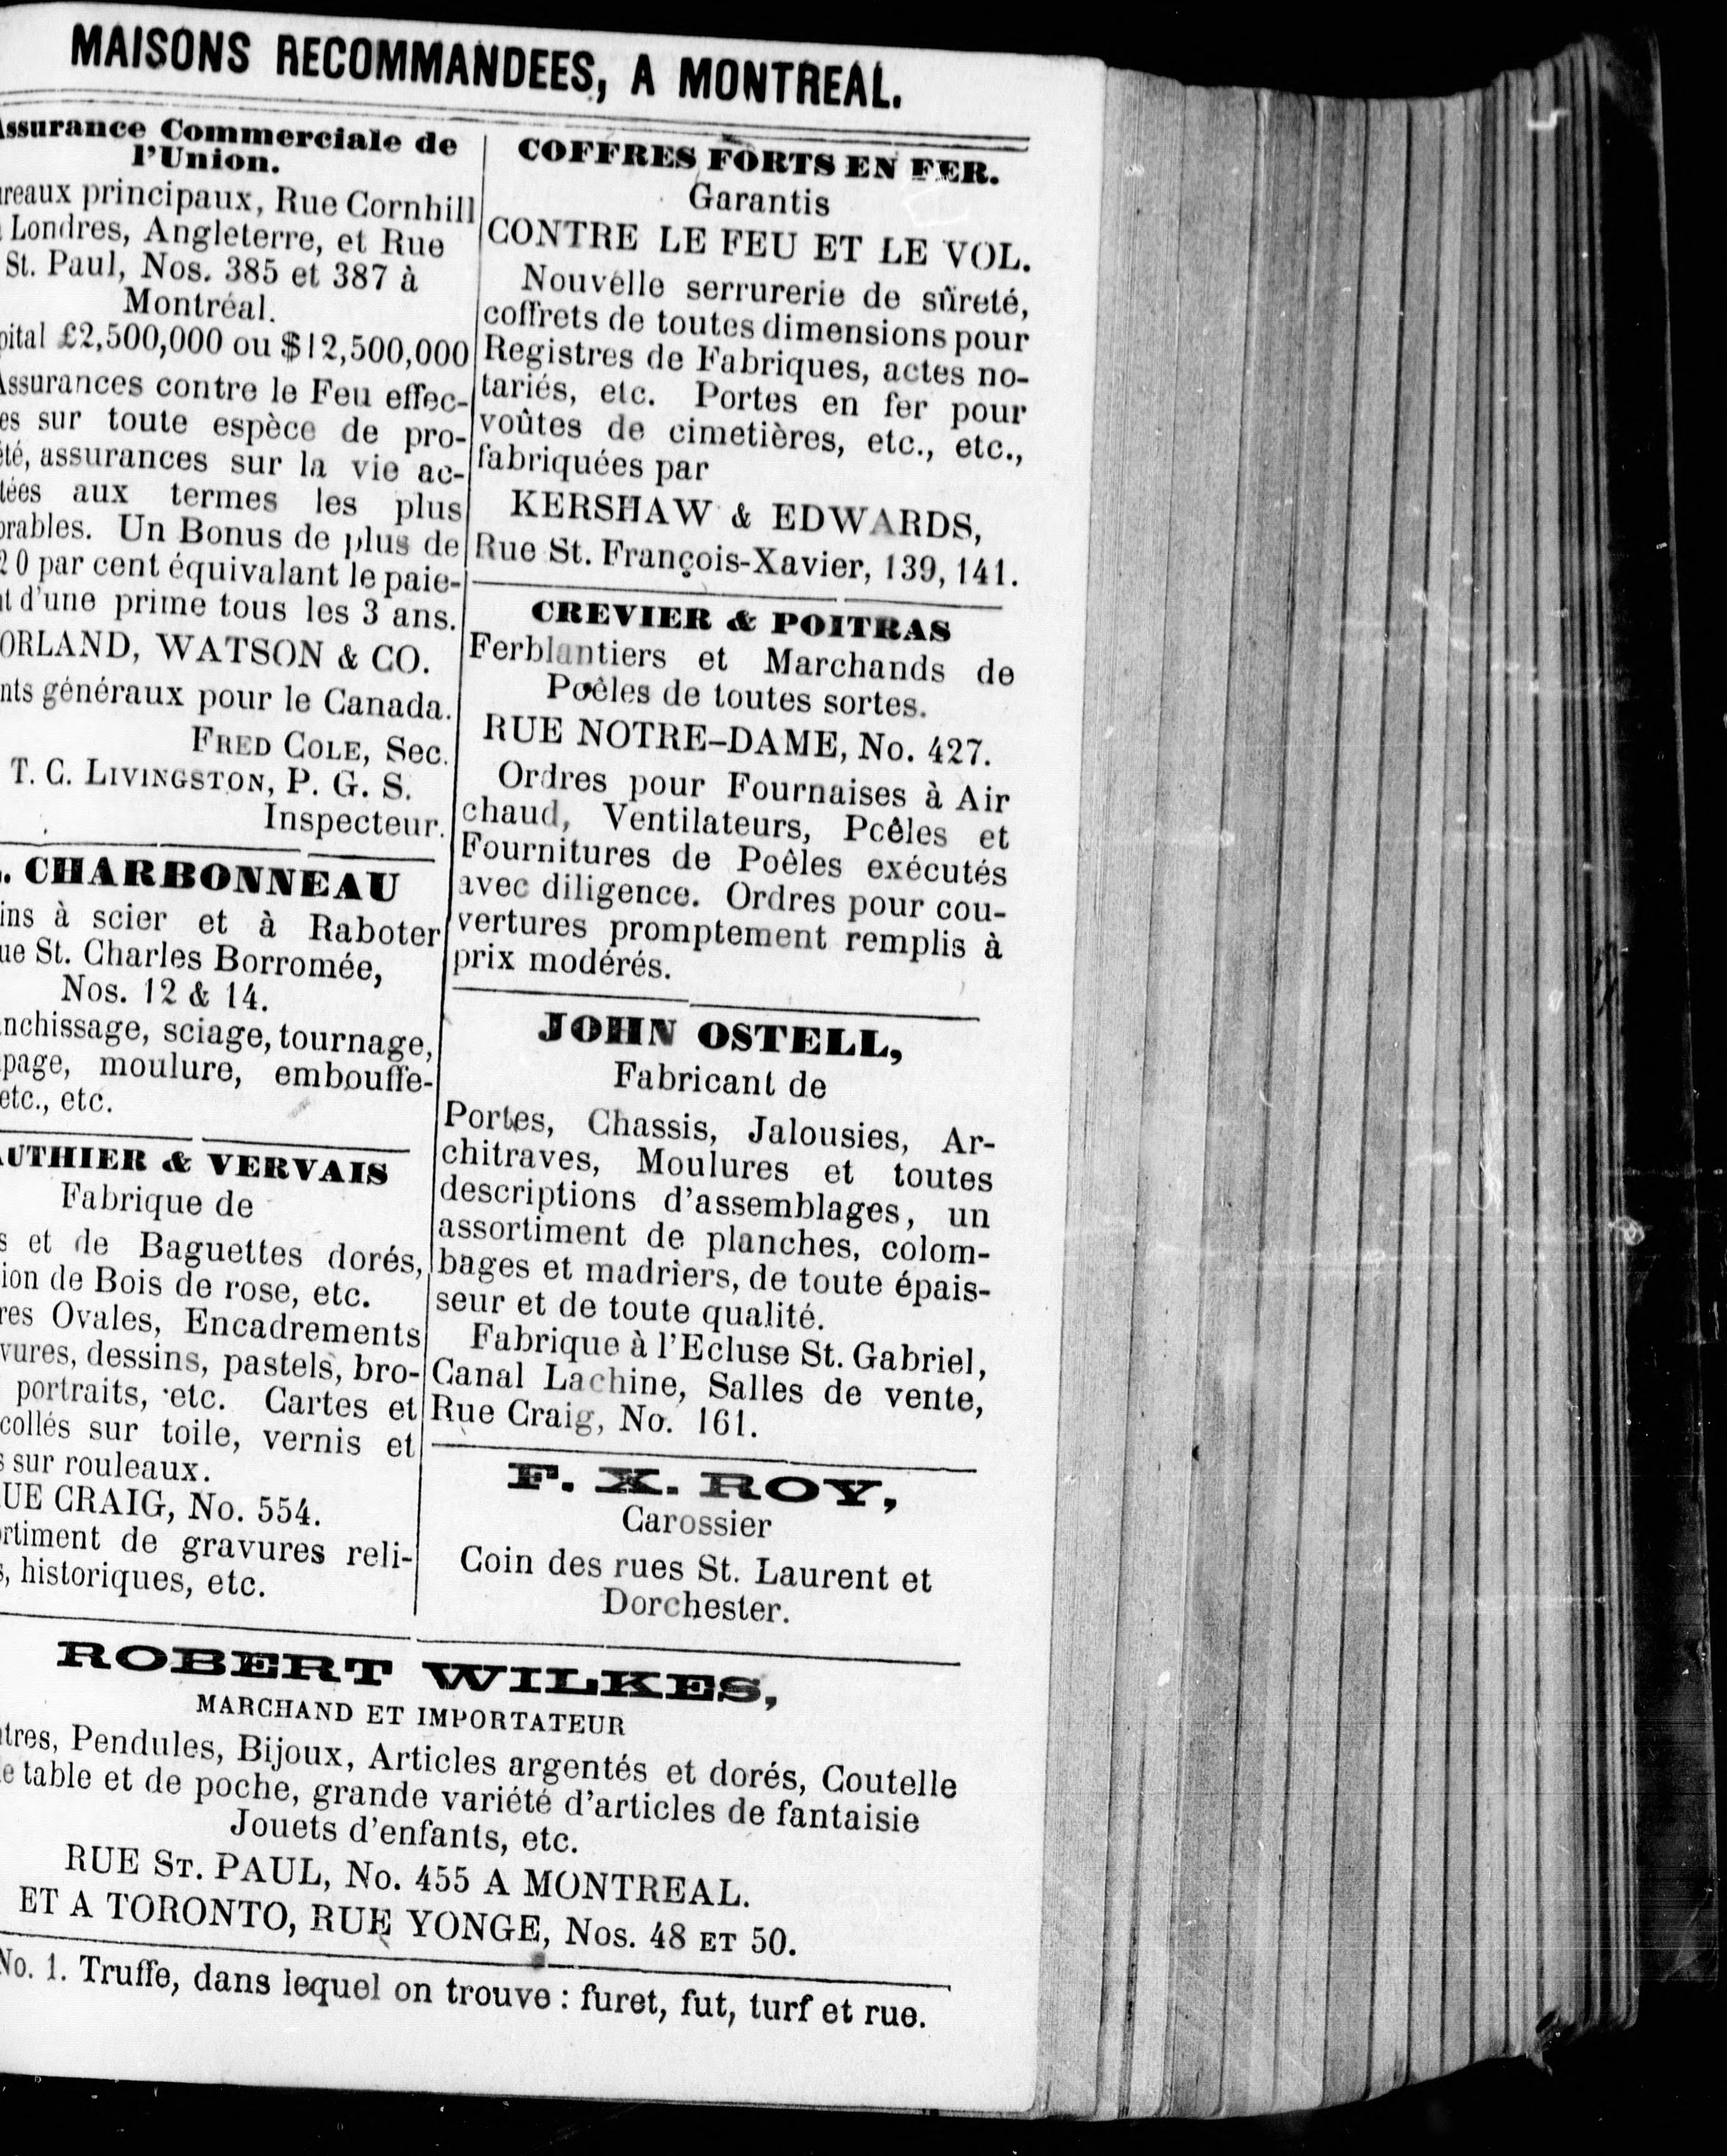 MAISONS RECOMMANDEES, A MONTREAL.
Assurance Commerciale de
l'Union.
principaux, Rue Cornhill
Londres, Angleterre, et Rue
St. Paul, Nos. 385 et 387 à
Montréal.
£2,500,000 ou $12,500,000
Assurances contre le Feu effec-
sur toute espèce de pro-
assurances sur la vie ac-
aux termes les plus
Un Bonus de plus de
20 par cent équivalant le paie-
d'une prime tous les 3 ans.
WATSON & CO.
généraux pour le Canada.
FRED COLE, Sec.
T. C. LIVINGSTON, P. G. S.
Inspecteur.
CHARBONNEAU
à scier et à Raboter
St. Charles Borromée,
Nos. 12 & 14.
sciage, tournage,
moulure, embouffe-
etc., etc.
& VERVAIS
Fabrique de
et de Baguettes dorés,
de Bois de rose, etc.
Ovales, Encadrements
dessins, pastels, bro-
portraits, etc. Cartes et
collés sur toile, vernis et
sur rouleaux.
RUE CRAIG, No. 554.
de gravures reli-
historiques, etc.
COFFRES FORTS EN FER.
Garantis
CONTRE LE FEU ET LE VOL.
Nouvelle serrurerie de sûreté,
coffrets de toutes dimensions pour
Registres de Fabriques, actes no-
tariés, etc. Portes en fer pour
voûtes de cimetières, etc., etc.,
fabriquées par
KERSHAW & EDWARDS,
Rue St. François-Xavier, 139, 141.
CREVIER & POITRAS
Ferblantiers et Marchands de
Poêles de toutes sortes.
RUE NOTRE-DAME, No. 427.
Ordres pour Fournaises à Air
chaud, Ventilateurs, Pcêles et
Fournitures de Poêles exécutés
avec diligence. Ordres pour cou-
vertures promptement remplis à
prix modérés.
JOHN OSTELL,
Fabricant de
Portes, Chassis, Jalousies, Ar-
chitraves, Moulures et toutes
descriptions d'assemblages, un
assortiment de planches, colom-
bages et madriers, de toute épais-
seur et de toute qualité.
Fabrique à l'Ecluse St. Gabriel,
Canal Lachine, Salles de vente,
Rue Craig, No. 161.
F. X. ROY,
Carossier
Coin des rues St. Laurent et
Dorchester.
ROBERT WILKES,
MARCHAND ET IMPORTATEUR
Pendules, Bijoux, Articles argentés et dorés, Coutelle
table et de poche, grande variété d'articles de fantaisie
Jouets d'enfants, etc.
RUE ST. PAUL, No. 455 A MONTREAL.
ET A TORONTO, RUE YONGE, Nos. 48 ET 50.
No. 1. Truffe, dans lequel on trouve : furet, fut, turf et rue.